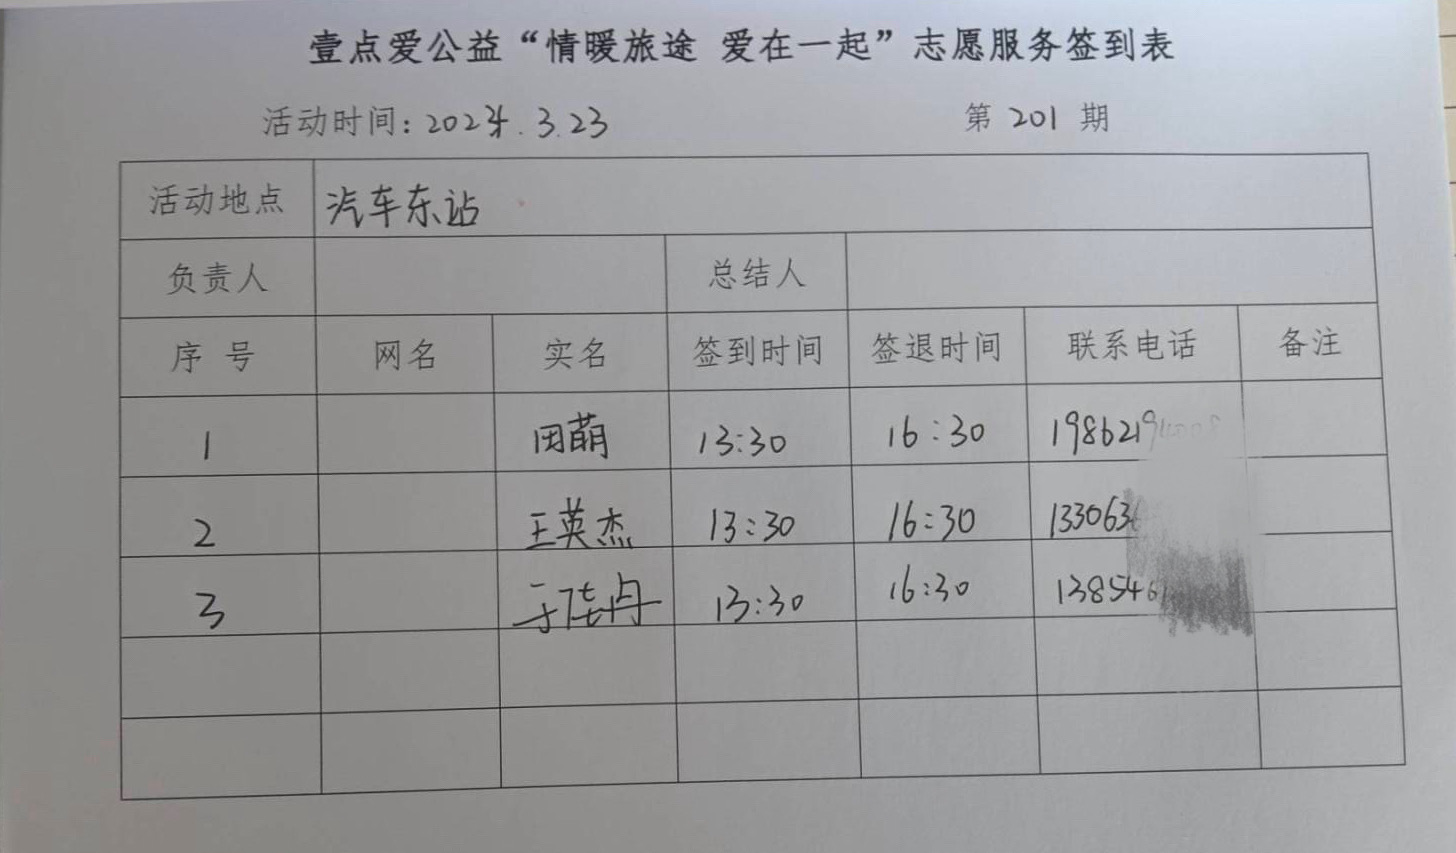 壹点爱公益“情暖旅途 爱在一起”志愿服务签到表
活动时间：2024.3.23 第 201 期
活动地点 汽车东站
负责人 总结人
序号 网名 实名 签到时间 签退时间 联系电话 备注
1 田萌 13:30 16:30 1986219
2 王英杰 13:30 16:30 133063
3 13:30 16:30 138546